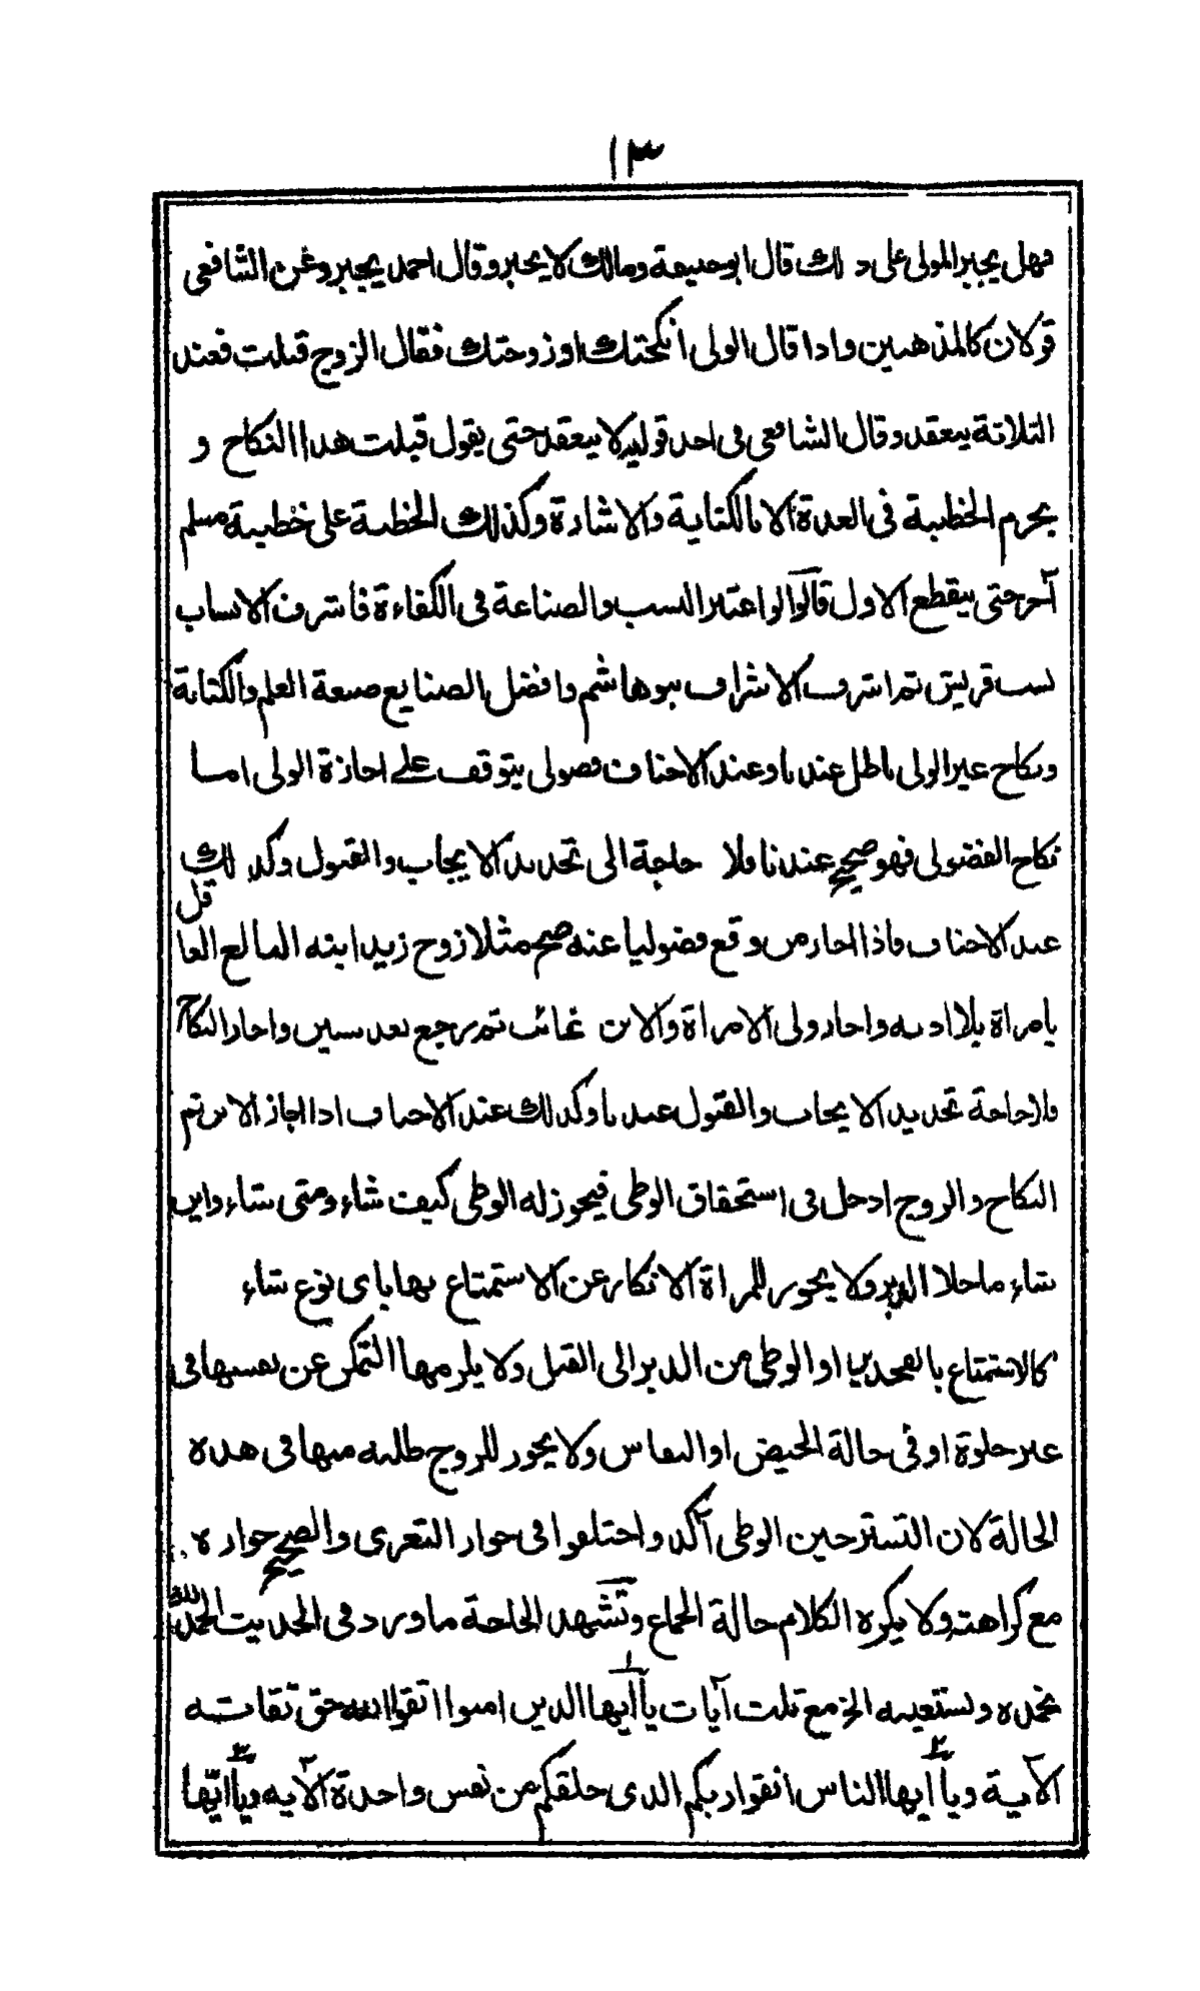 ١٣
فهل يجبر المولى على ذلك قال ابو حنيفة ومالك لا يجبر وقال احمد يجبر وعن الشافعي
قولان كالمذهبين واذا قال الولى انكحتك او زوجتك فقال الزوج قبلت فعند
الثلاثة ينعقد وقال الشافعى فى احد قوليه لا ينعقد حتى يقول قبلت هذا النكاح و
يحرم الخطبة فى العدة الا بالكناية والاشارة وكذلك الخطبة على خطيبة مسلم
آخر حتى ينقطع الاول قالوا واعتبر النسب والصناعة فى الكفاءة فاشرف الانساب
نسب قريش ثم اشرف الاشراف بنوهاشم وافضل الصنايع صنعة العلم والكتابة
ونكاح غير الولى باطل عندنا وعند الاحناف فضولى يتوقف على اجازة الولى اما
نكاح الفضولى فهو صحيح عندنا فلا حاجة الى تجديد الايجاب والقبول وكذلك
عند الاحناف فاذا اجاز من وقع فضوليا عنه صح مثلا زوج زيد ابنه البالغ العاقل
بامراة بلا اذنه واجاز ولى الامراة والابن غائب ثم رجع بعد سنين واجاز النكاح
فلا حاجة تجديد الايجاب والقبول عندنا وكذلك عند الاحناف اذا اجاز الابن تم
النكاح والزوج ادخل فى استحقاق الوطى فيجوز له الوطى كيف شاء ومتى شاء واين
شاء ماخلا الدبر ولا يجوز للمراة الانكار عن الاستمتاع بها باى نوع شاء
كالاستمتاع بالفخذين او الوطى من الدبر الى القبل ولا يلزمها التمكن عن نفسها فى
غير خلوة او فى حالة الحيض او النفاس ولا يجوز للزوج طلبه منها فى هذه
الحالة لان التستر حين الوطى آكد واختلفوا فى جواز التعرى والصحيح جوازه
مع كراهته ولا يكره الكلام حالة الجماع وتشهد الحاجة ما ورد فى الحديث الحمد لله
نحمده ونستعينه الخ مع ثلث آيات يا ايها الذين امنوا اتقوا الله حق تقاته
الآية ويا ايها الناس اتقوا ربكم الذى خلقكم من نفس واحدة الآيه ويا ايها